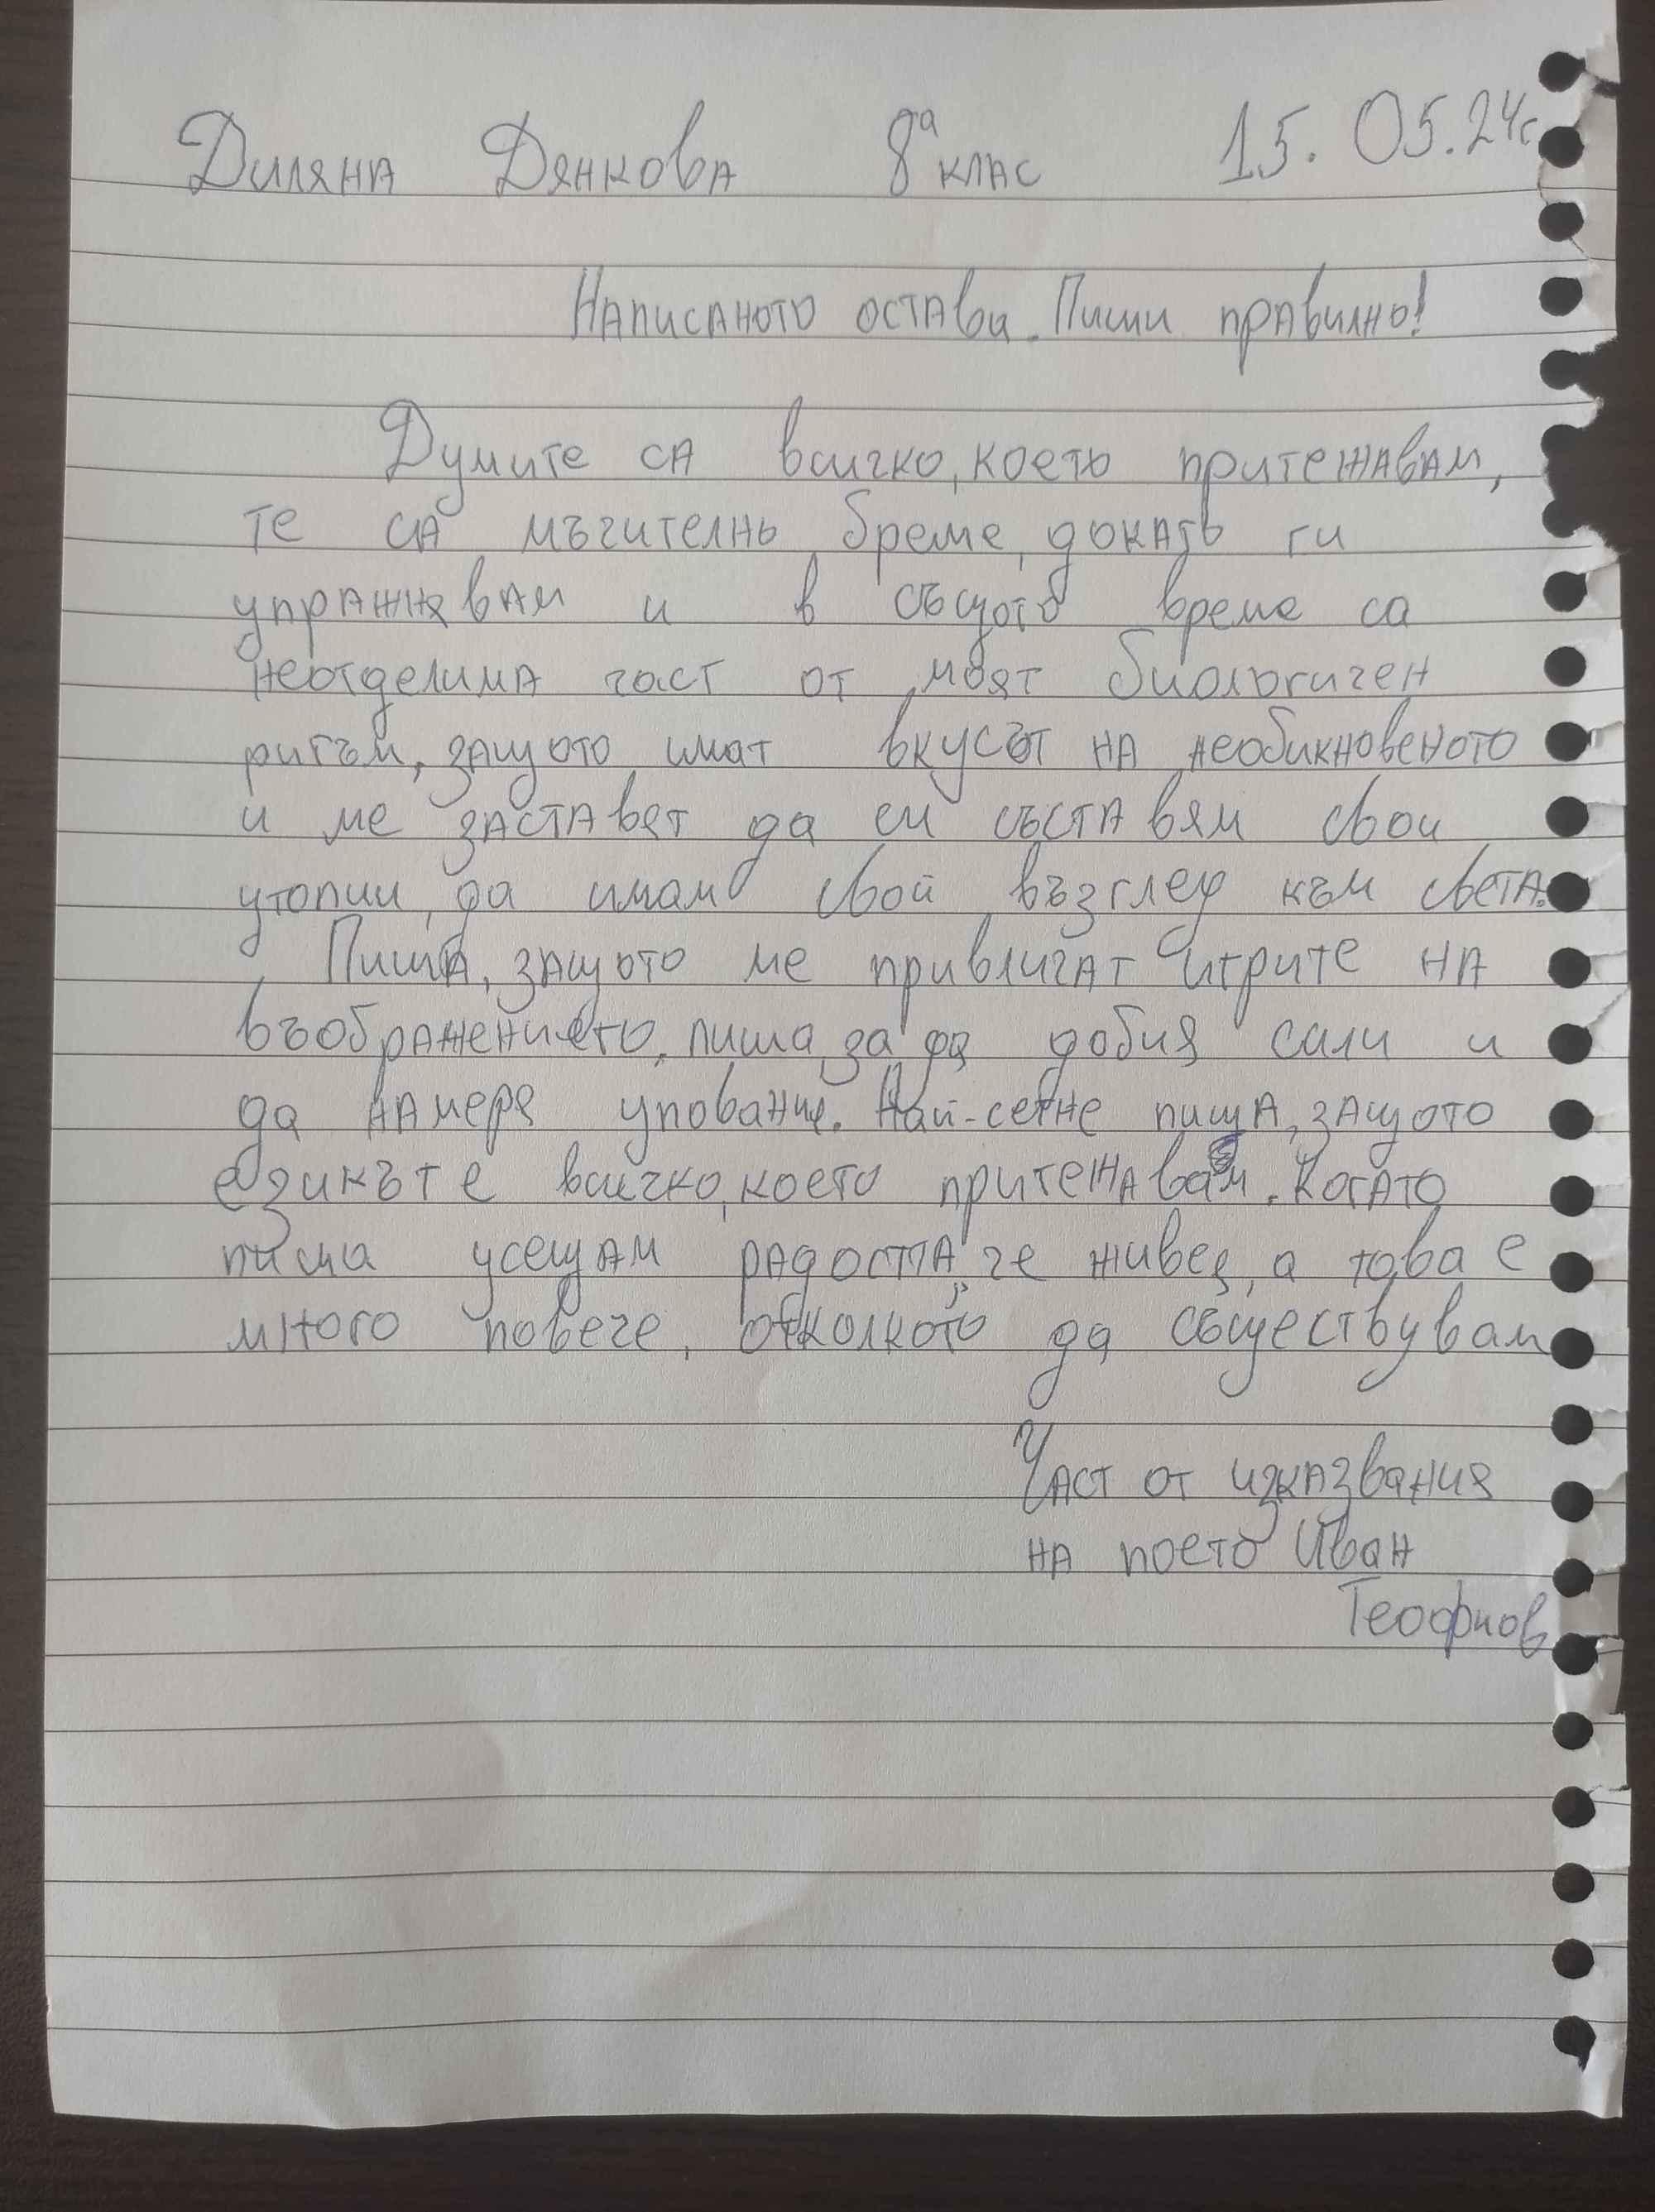 Диляна Дянкова 8а клас 15.05.24г
Написаното остава. Пиши правилно!
Думите са всичко, което притежавам,
те са мъчително бреме, докато ги
упражнявам и в същото време са
неотделима част от моят биологичен
ритъм, защото имат вкусът на необикновеното
и ме заставят да си съставям свои
утопии, да имам свой възглед към света.
Пиша, защото ме привличат игрите на
въображението, пиша, за да добия сили и
да намеря упование. Най-сетне пиша, защото
езикът е всичко, което притежавам. Когато
пиша усещам радостта, че живея, а това е
много повече, отколкото да съществувам
Част от изказвания
на поета Иван